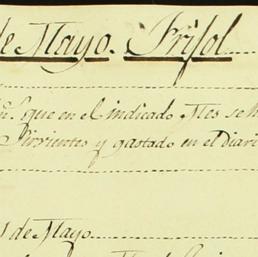 de Mayo. Frisol
que en el indicado Mes se h
Sirvientes y gastado en el Diari
de Mayo